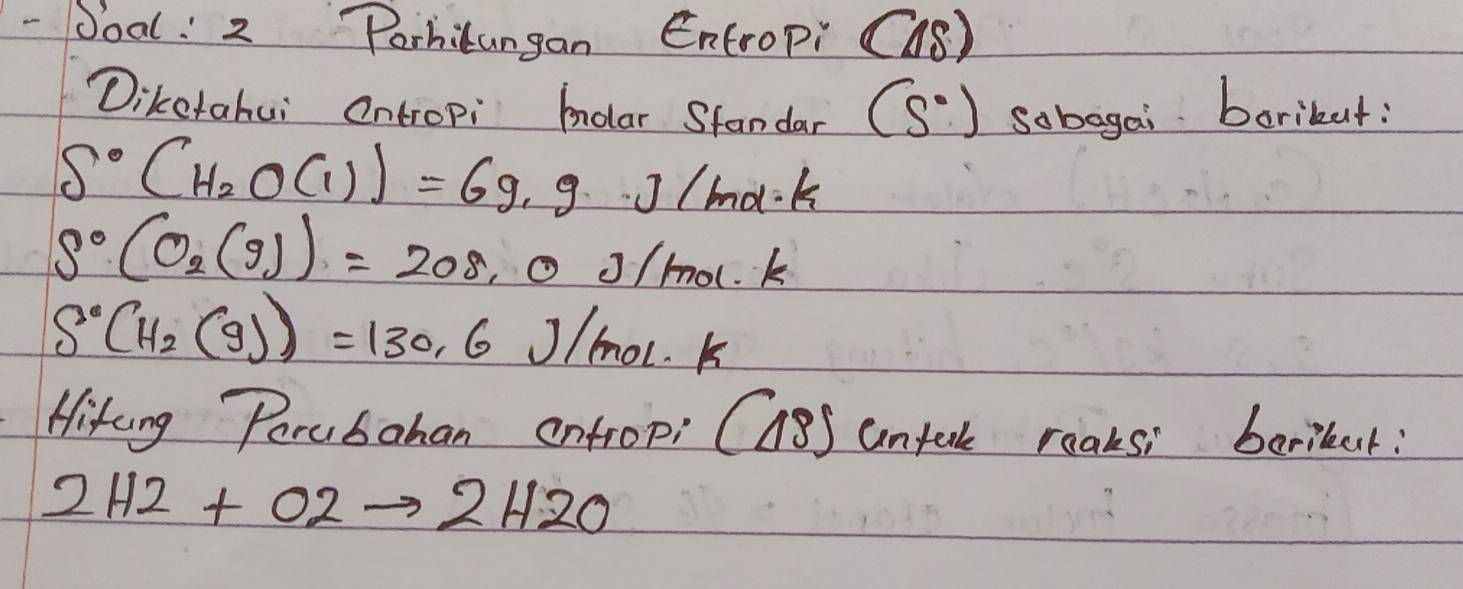 - Soal : 2 Perhitungan Entropi (ΔS)
Diketahui entropi molar Standar (S°) sebagai berikut :
S° (H₂O(l)) = 69,9 J/mol.k
S° (O₂(g)) = 205,0 J/mol.k
S° (H₂(g)) = 130,6 J/mol.k
Hitung Perubahan entropi (ΔS) untuk reaksi berikut :
2H2 + O2 → 2H2O